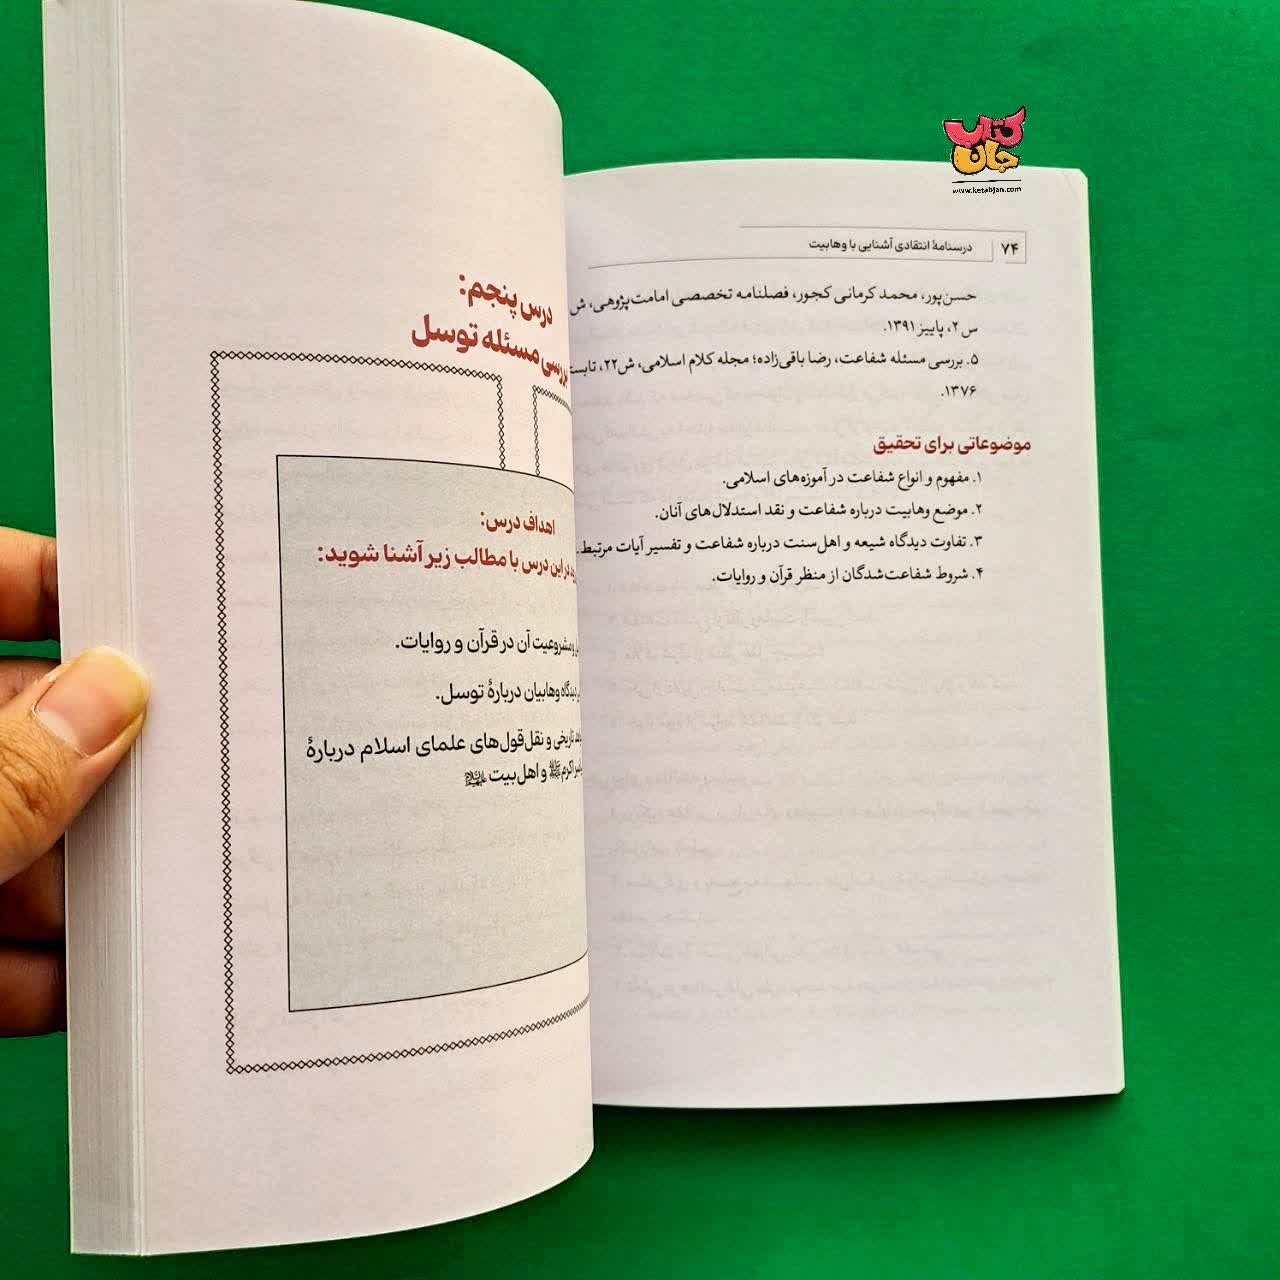 کتاب
جان
www.ketabjan.com
۷۴ درسنامهٔ انتقادی آشنایی با وهابیت
حسن‌پور، محمد کرمانی کجور، فصلنامه تخصصی امامت‌پژوهی، ش
س ۲، پاییز ۱۳۹۱.
۵. بررسی مسئله شفاعت، رضا باقی‌زاده؛ مجله کلام اسلامی، ش۲۲،
۱۳۷۶.
موضوعاتی برای تحقیق
۱. مفهوم و انواع شفاعت در آموزه‌های اسلامی.
۲. موضع وهابیت درباره شفاعت و نقد استدلال‌های آنان.
۳. تفاوت دیدگاه شیعه و اهل‌سنت درباره شفاعت و تفسیر آیات مرتبط.
۴. شروط شفاعت‌شدگان از منظر قرآن و روایات.
درس پنجم:
بررسی مسئله توسل
اهداف درس:
در این درس با مطالب زیر آشنا شوید:
مشروعیت آن در قرآن و روایات.
دیدگاه وهابیان دربارهٔ توسل.
تاریخی و نقل‌قول‌های علمای اسلام دربارهٔ
اکرم ﷺ و اهل‌بیت